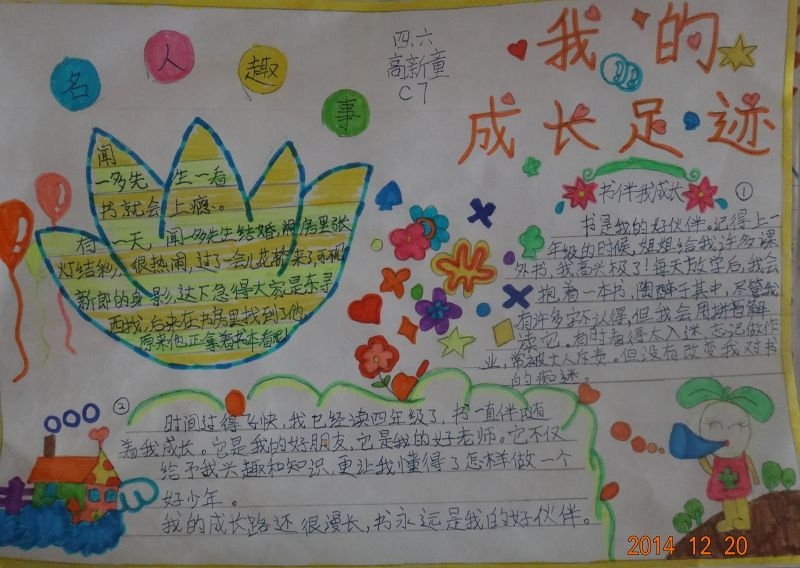 我的
成长足迹
四、六
高新童
C7
名人趣事
闻
一多先生一看
书就会上瘾。
一天,闻一多先生结婚,洞房里张
灯结彩,很热闹,过了一会儿花轿来了不见
新郎的身影,这下急得大家是东寻
西找,后来在书房里找到了他,
原来他正拿着书本看呢!
书伴我成长
①
书是我的好伙伴。记得上一
年级的时候,姐姐给我许多课
外书,我高兴极了!每天放学后,我会
抱着一本书,陶醉于其中,尽管我
有许多字不认得,但我会用拼音解
读它。有时看得太入迷忘记做作
业,常被大人斥责。但没有改变我对书
的痴迷。
②
时间过得飞快,我已经读四年级了,书一直伴随
着我成长。它是我的好朋友,它是我的好老师。它不仅
给予我兴趣和知识,更让我懂得了怎样做一个
好少年。
我的成长路还很漫长,书永远是我的好伙伴。
2014 12 20